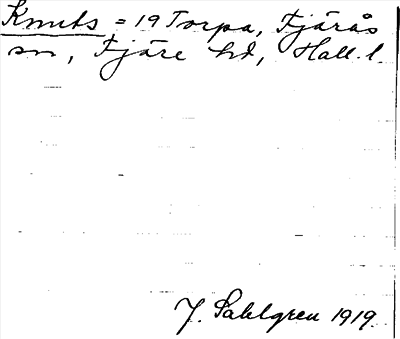 Knuts = 19 Torpa, Fjärås
sn, Fjäre hd, Hall. l.
J. Sahlgren 1919.